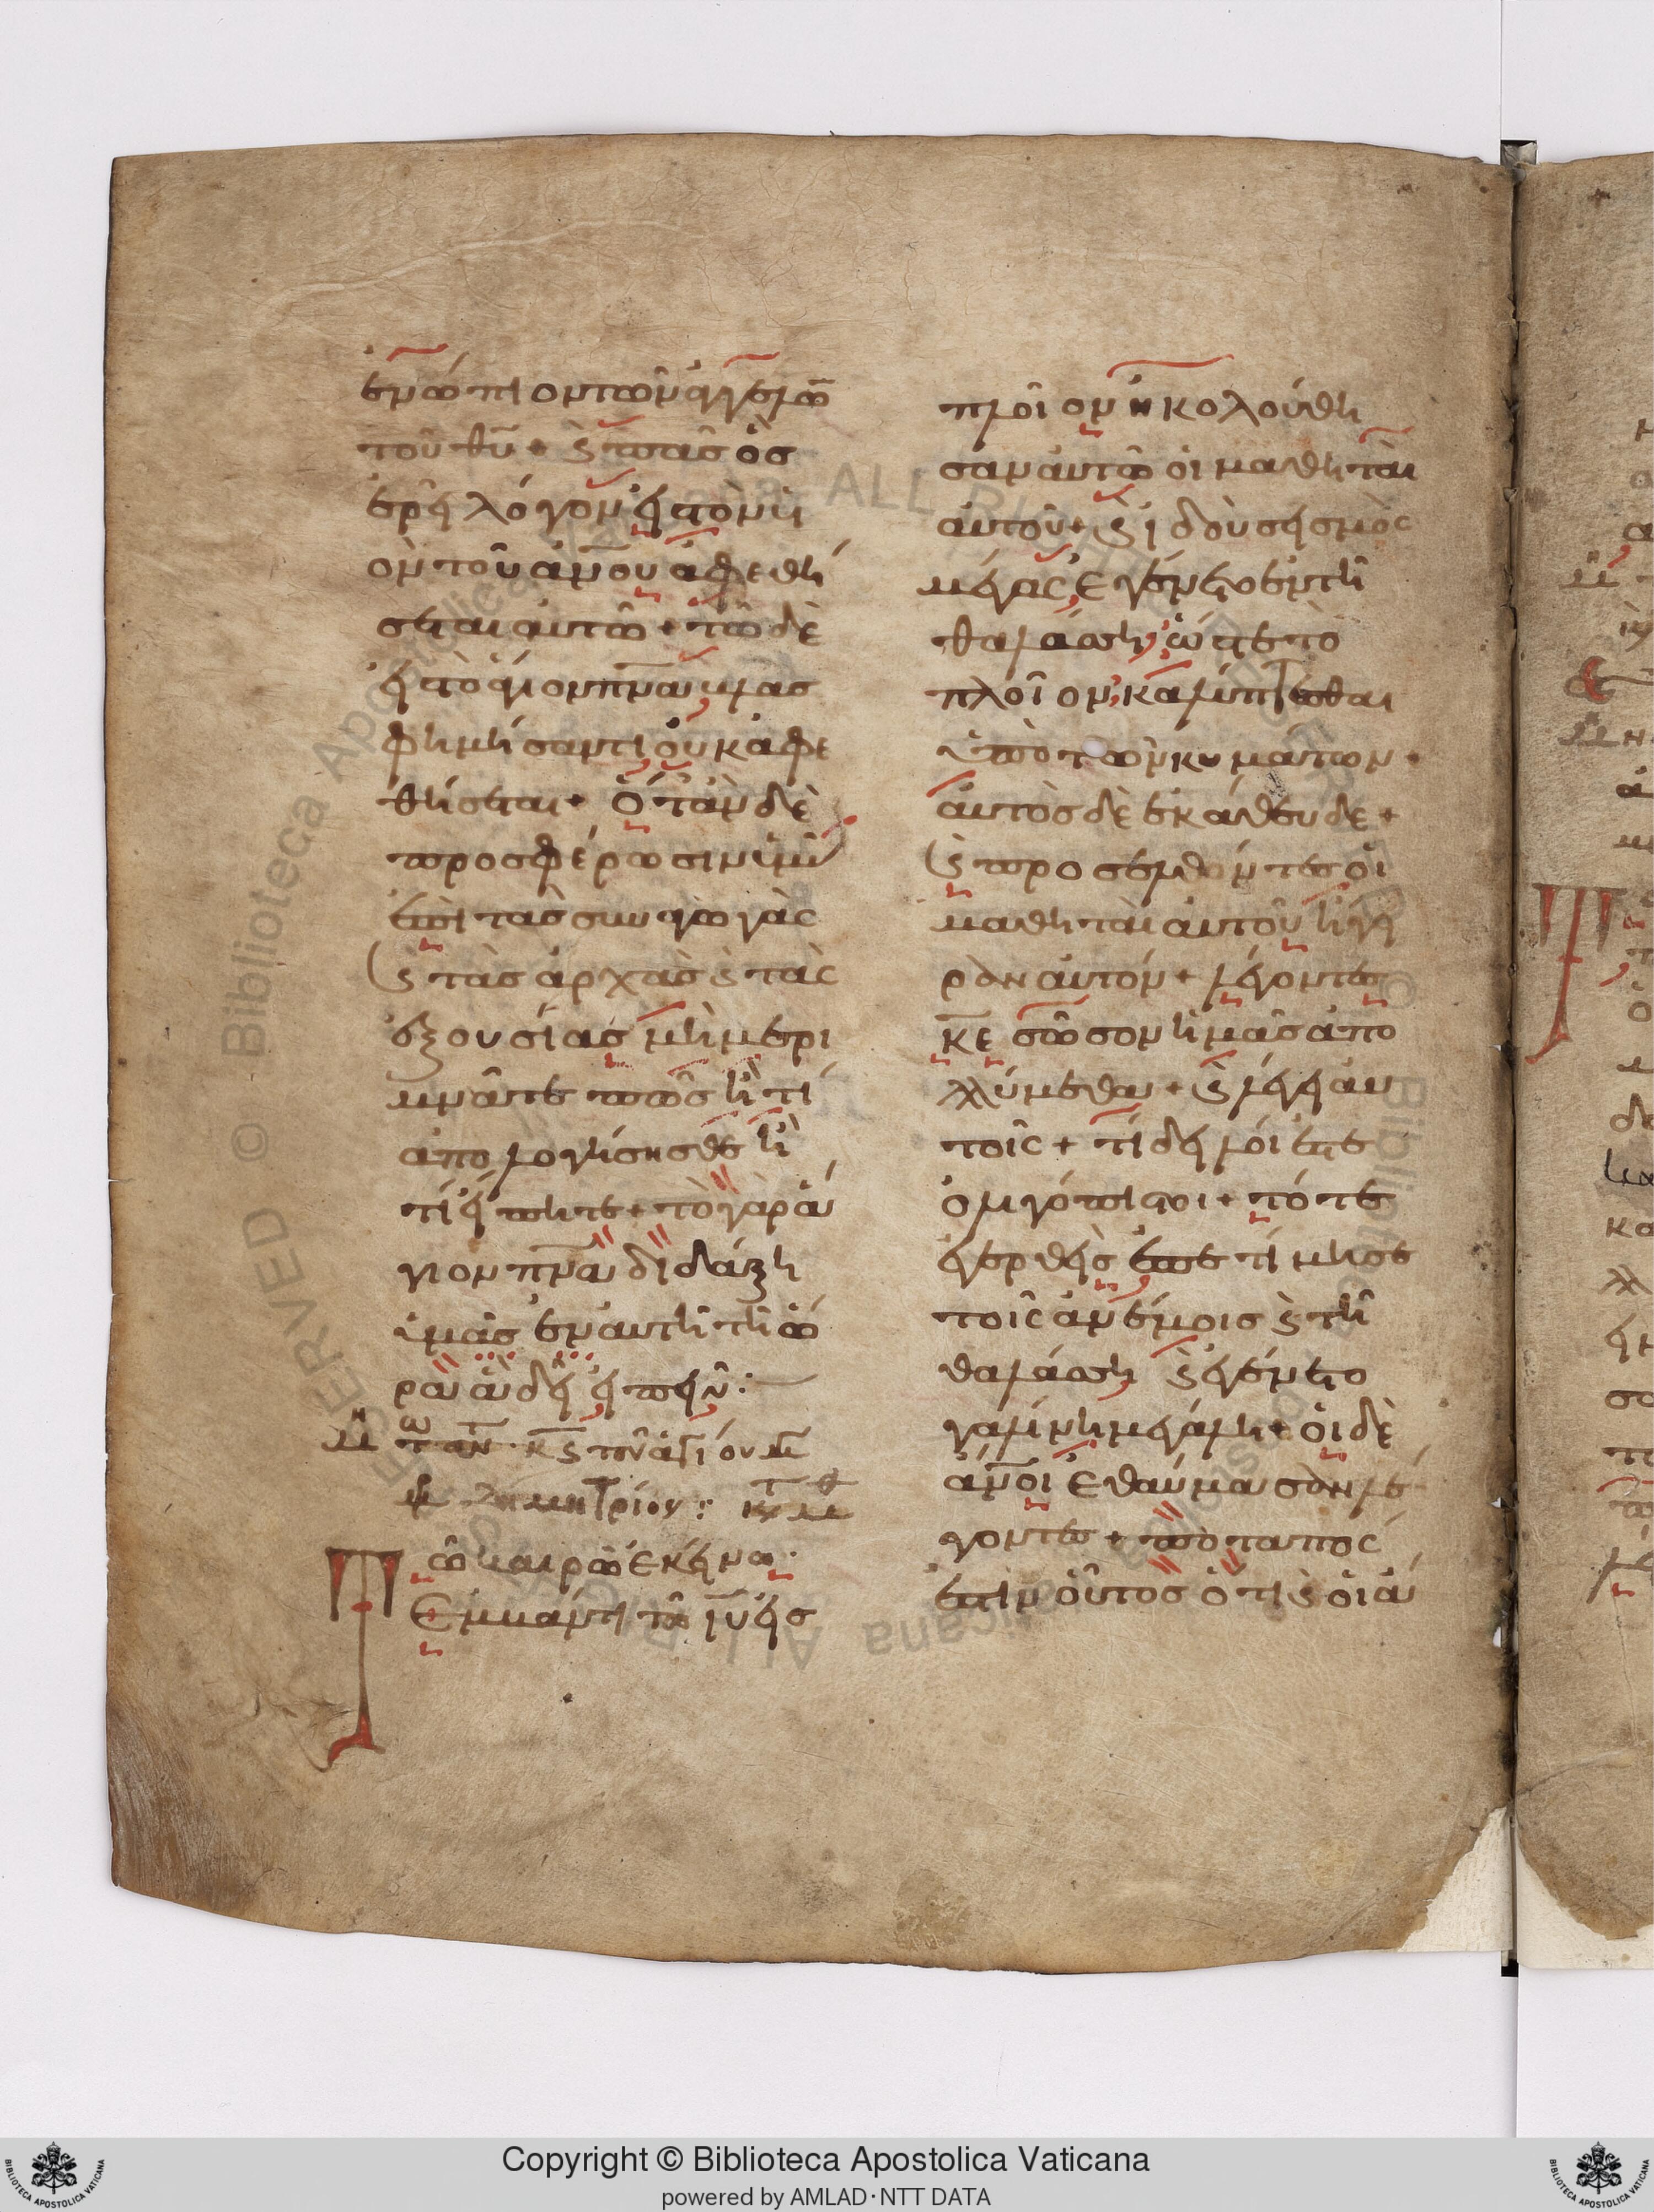 ἐνώπιον τῶν ἀγγέλω̅
τοῦ θ̅υ̅ + ϗ πᾶσ ὁσ
ἐρεῖ λόγον εἰσ τὸν ὑι
ὸν τοῦ ἀν̅ου ἀφεθή
σεται αὐτῶ + τῶ δὲ
εἰσ τὸ ἅγιον π̅ν̅α βλασ
φημήσαντι οὐκ ἀφε
θήσεται + Ὅταν δὲ
προσφέρωσιν ὑμᾶσ
ἐπὶ τὰσ συναγωγὰς
ϗ τὰσ ἀρχὰσ ϗ τὰς
ἐξουσίασ μὴ μερι
μνᾶτε πῶσ ἢ τί
ἀπολογήσησθε ἢ
τί εἴπητε + τὸ γὰρ ἅ
γιον π̅ν̅α διδάξη
ὑμᾶσ ἐν αὐτῆ τῆ ὥ
ρα ἃ δεῖ εἰπεῖν :
Τῶ καιρῶ ἐκείνω
Ἐμβάντι τῶ ι̅υ̅ εἰσ
πλοῖον ἠκολούθη
σαν αὐτῶ οἱ μαθηταὶ
αὐτοῦ + ϗ ἰδοὺ σεισμὸς
μέγας Ἐγένετο ἐν τῆ
θαλάσση, ὥστε τὸ
πλοῖον, καλύπτεσθαι
ὑπὸ τῶν κυμάτων +
αὐτὸσ δὲ ἐκάθευδε +
ϗ προσελθόντεσ οἱ
μαθηταὶ αὐτοῦ ἤγει
ραν αὐτόν + λέγοντεσ
κ̅ε̅ σῶσον ἡμᾶσ ἀπο
λλύμεθα + ϗ λέγει αυ
τοῖς + τί δειλοί ἐστε
ὀλιγόπιστοι + τότε
ἐγερθεὶσ ἐπετίμησε
τοῖς ἀνέμοισ ϗ τῆ
θαλάσση ϗ ἐγένετο
γαλήνη μεγάλη + οἱ δὲ
ἄν̅οι Ἐθαύμασαν λέ
γοντεσ + ποταπος
ἐστὶν οὗτοσ ὅτι ϗ οἱ ἄ
Copyright © Biblioteca Apostolica Vaticana
powered by AMLAD·NTT DATA